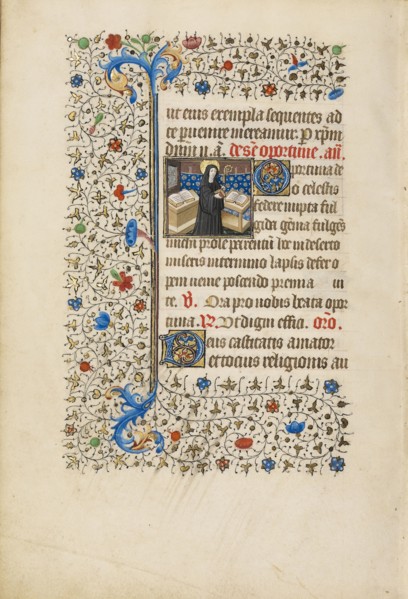 ut eius exempla sequentes ad
te puenire mereamur. P xpm
dnm n. a. de sce oportune. an.
Oportuna de
o celestis
federe nupta ful
gida gema fulges
michi prole parentu hic in deserto
miseris in termino lapsis defer o
pem neme poscendo premia in
te. V. Ora pro nobis beata opor
tuna. R. Ut digni effic. oro.
Deus castitatis amator
et totius religionis au